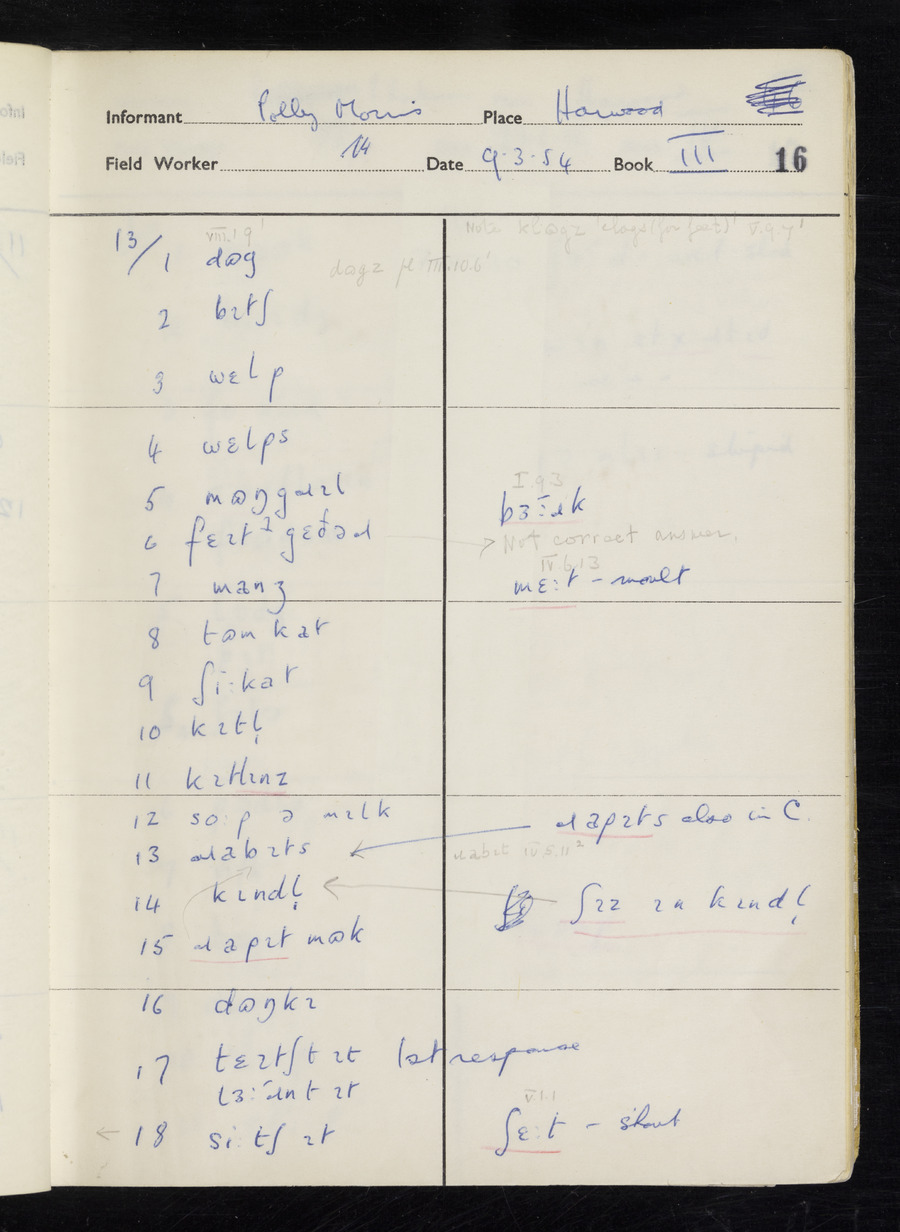 Informant Polly Morris Place Harwood
Field Worker Date 9-3-54 Book III 16
13/ viii.1.9' Note klɒgz 'clogs (for feet)' V.9.7'
1 dɒg dɒgz pl III.10.6'
2 bɪtʃ
3 wɛlp
4 wɛlps
5 mɒŋgɹɪl I.9.3 bɜ̈:ɹk
6 fɛɪtɪgɛðəɹ → Not correct answer.
7 manʒ IV.6.13 mɛ:t - moult
8 tɒm kat
9 ʃi:kat
10 kɪtl̩
11 kɪtlɪnz
12 so:p ə mɪlk ɹapɪts also in C.
13 ɹabɪts ɹabɪt IV.5.11²
14 kɪndl̩ ʃɪz ɪn kɪndl̩
15 ɹapɪt mɒk
16 dɒŋkɪ
17 tɛɪtʃt ɪt 1st response
lɜ̈:ɹnt ɪt V.1.1
← 18 si:tʃ ɪt ʃɛ:t - shout